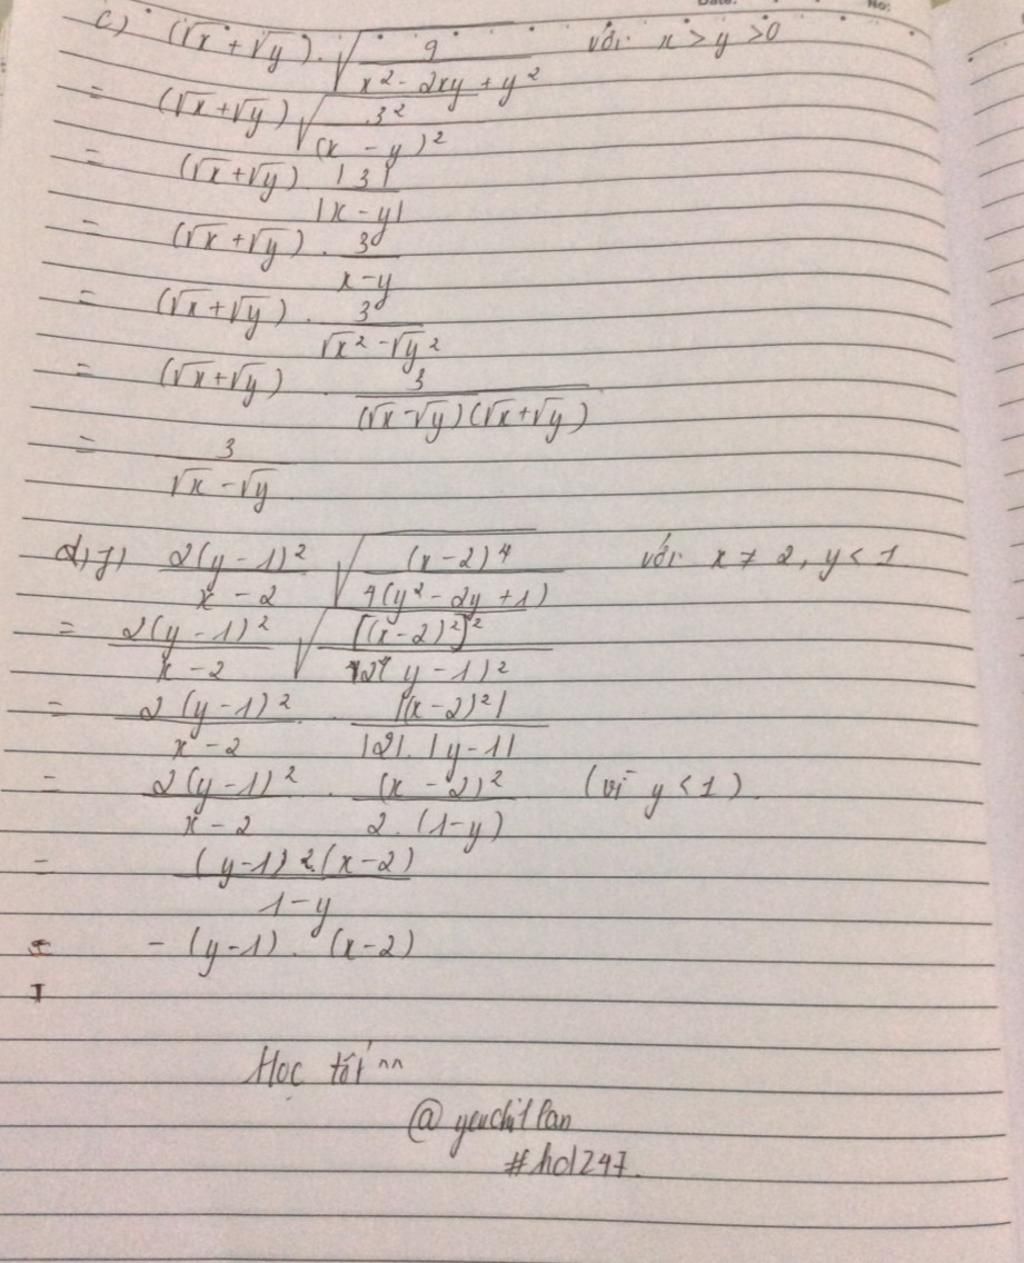 No:
c) (√x + √y) . √(9 / (x² - 2xy + y²)) với x > y > 0
= (√x + √y) √(3² / (x - y)²)
= (√x + √y) |3| / |x - y|
= (√x + √y) . 3 / (x - y)
= (√x + √y) . 3 / (√x² - √y²)
= (√x + √y) 3 / ((√x - √y)(√x + √y))
= 3 / (√x - √y)
2(y - 1)² / (x - 2) √((x - 2)⁴ / (4(y² - 2y + 1))) với x ≠ 2, y < 1
= 2(y - 1)² / (x - 2) √([(x - 2)²]² / (2²(y - 1)²))
= 2(y - 1)² / (x - 2) . |(x - 2)²| / (|2| . |y - 1|)
= 2(y - 1)² / (x - 2) . (x - 2)² / (2 . (1 - y)) (vì y < 1).
= (y - 1)² . (x - 2) / (1 - y)
= - (y - 1) . (x - 2)
Học tốt ^^
#hd247.